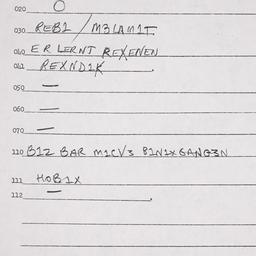 020 O
030 REB1 / M3LAM1T.
040 ER LERNT REXENEN
041 REXND1K.
050 —
060 —
070 —
110 B1Z BAR M1CV3 B1N1XGANG3N
111 HOB1X
112 —.